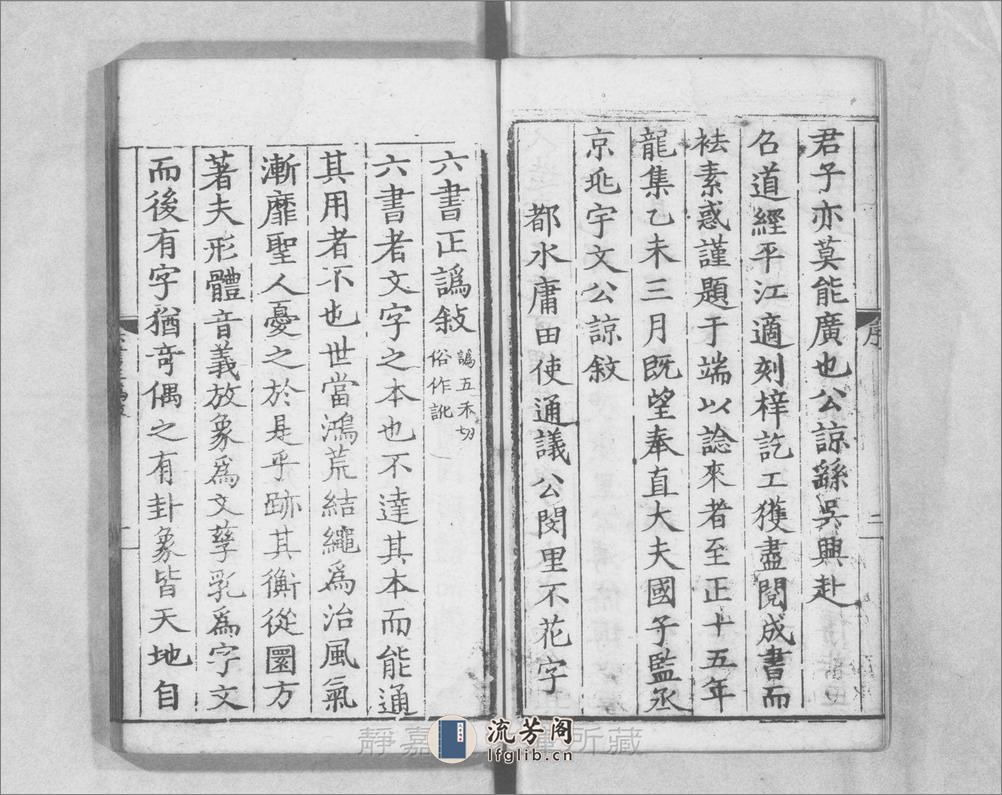 君子亦莫能廣也公諒繇吳興赴
召道經平江適刻梓訖工獲盡閱成書而
袪素惑謹題于端以諗來者至正十五年
龍集乙未三月既望奉直大夫國子監丞
京兆宇文公諒敘
都水庸田使通議公閔里不花字
序
二
六書正譌敍
譌五禾切
俗作訛
六書者文字之本也不達其本而能通
其用者不也世當鴻荒結繩爲治風氣
漸靡聖人憂之於是乎跡其衡從圜方
著夫形體音義放象爲文孳乳爲字文
而後有字猶奇偶之有卦象皆天地自
靜嘉
所藏
流芳阁
lfglib.cn